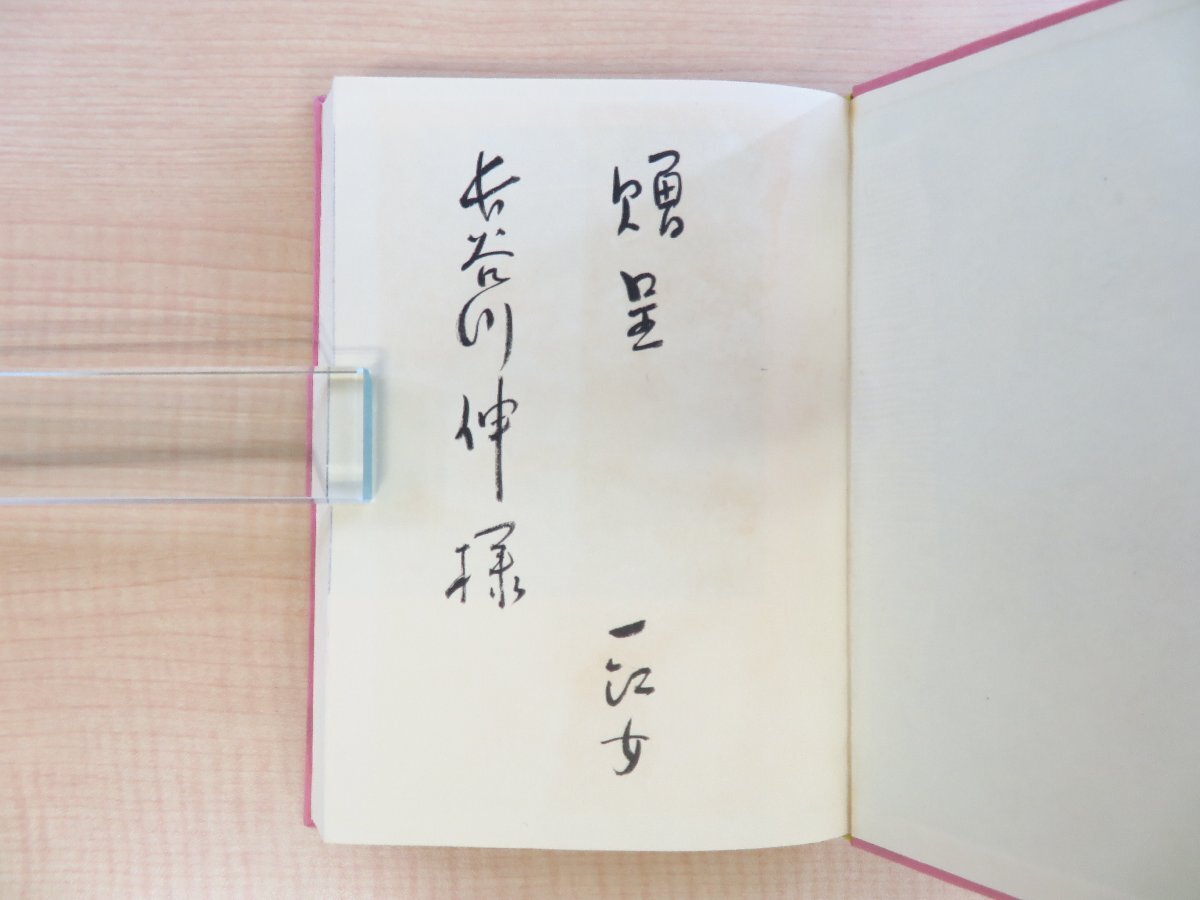 贈呈 一江女
長谷川伸様